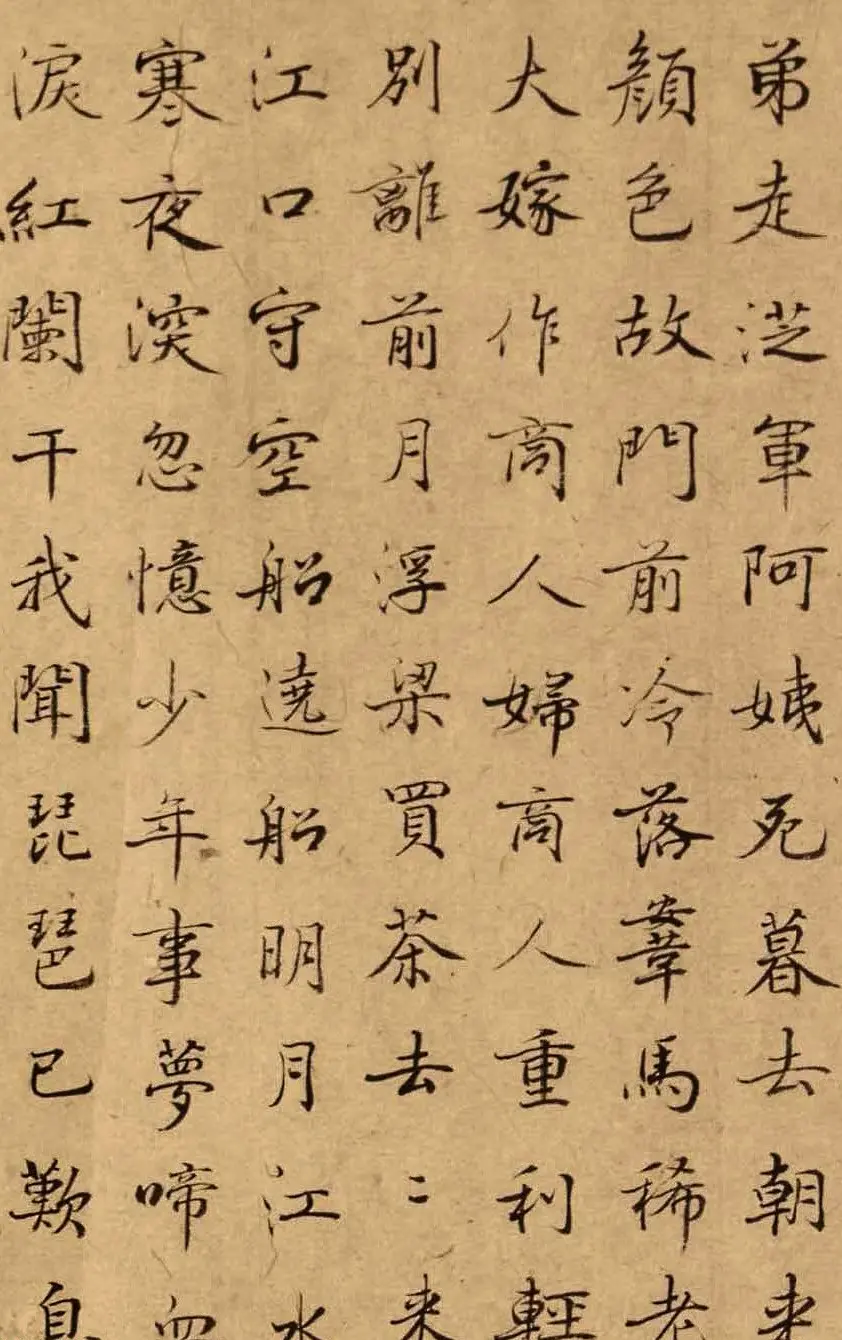 弟走從軍阿姨死暮去朝来
顔色故門前冷落鞌馬稀老
大嫁作商人婦商人重利輕
別離前月浮梁買茶去〻来
江口守空船遶船明月江水
寒夜深忽憶少年事夢啼血
淚紅闌干我聞琵琶已歎息